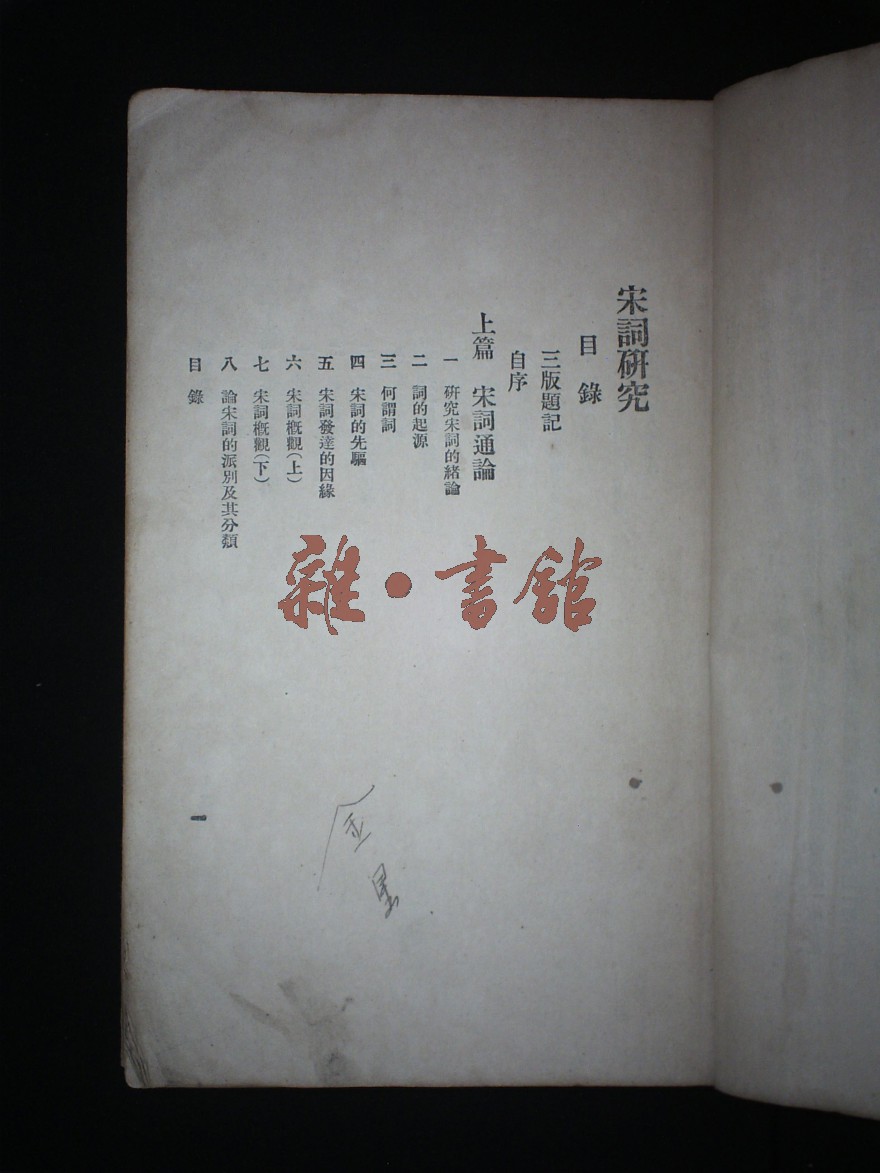 宋詞研究
目錄
三版題記
自序
上篇 宋詞通論
一 研究宋詞的緒論
二 詞的起源
三 何謂詞
四 宋詞的先驅
五 宋詞發達的因緣
六 宋詞概觀(上)
七 宋詞概觀(下)
八 論宋詞的派別及其分類
目錄
一
雜・書館